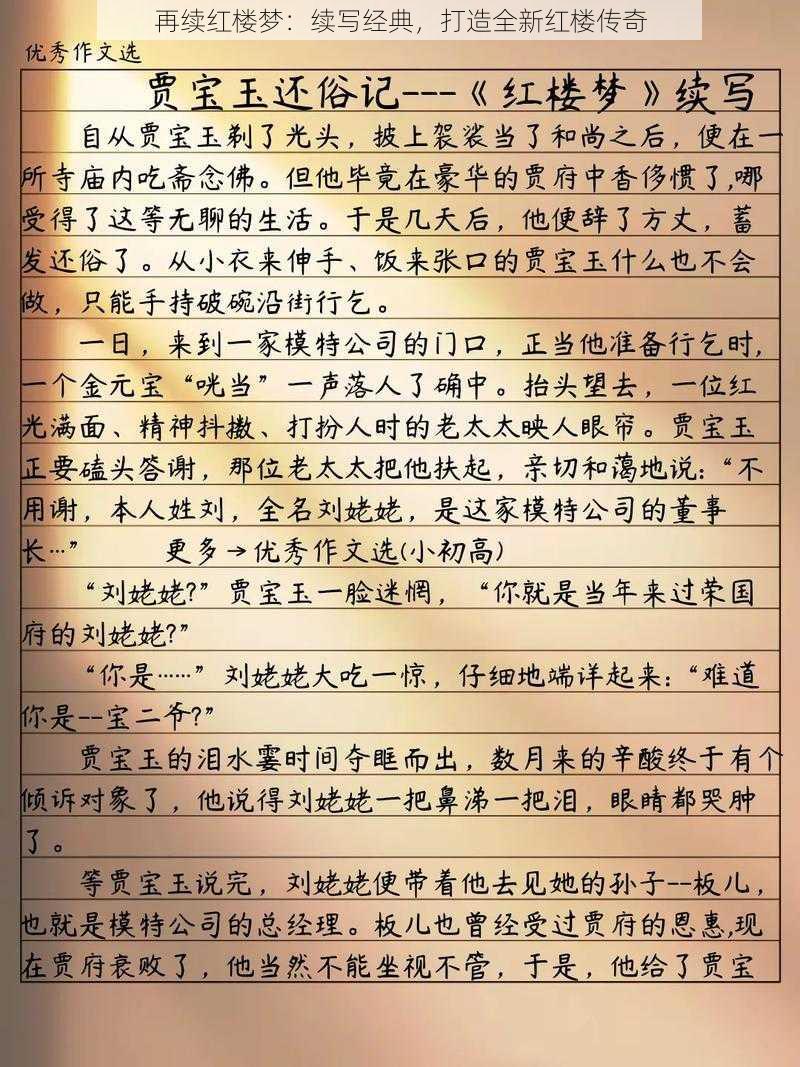 再续红楼梦：续写经典，打造全新红楼传奇
优秀作文选
贾宝玉还俗记---《红楼梦》续写
自从贾宝玉剃了光头，披上袈裟当了和尚之后，便在一
所寺庙内吃斋念佛。但他毕竟在豪华的贾府中香侈惯了,哪
受得了这等无聊的生活。于是几天后，他便辞了方丈，蓄
发还俗了。从小衣来伸手、饭来张口的贾宝玉什么也不会
做，只能手持破碗沿街行乞。
一日，来到一家模特公司的门口，正当他准备行乞时,
一个金元宝“咣当”一声落人了确中。抬头望去，一位红
光满面、精神抖擞、打扮人时的老太太映人眼帘。贾宝玉
正要磕头答谢，那位老太太把他扶起，亲切和蔼地说:“不
用谢，本人姓刘，全名刘姥姥，是这家模特公司的董事
长…” 更多→优秀作文选(小初高)
“刘姥姥?”贾宝玉一脸迷惘，“你就是当年来过荣国
府的刘姥姥?”
“你是……”刘姥姥大吃一惊，仔细地端详起来:“难道
你是--宝二爷?”
贾宝玉的泪水霎时间夺眶而出，数月来的辛酸终于有个
倾诉对象了，他说得刘姥姥一把鼻涕一把泪，眼睛都哭肿
了。
等贾宝玉说完，刘姥姥便带着他去见她的孙子--板儿，
也就是模特公司的总经理。板儿也曾经受过贾府的恩惠,现
在贾府衰败了，他当然不能坐视不管，于是，他给了贾宝